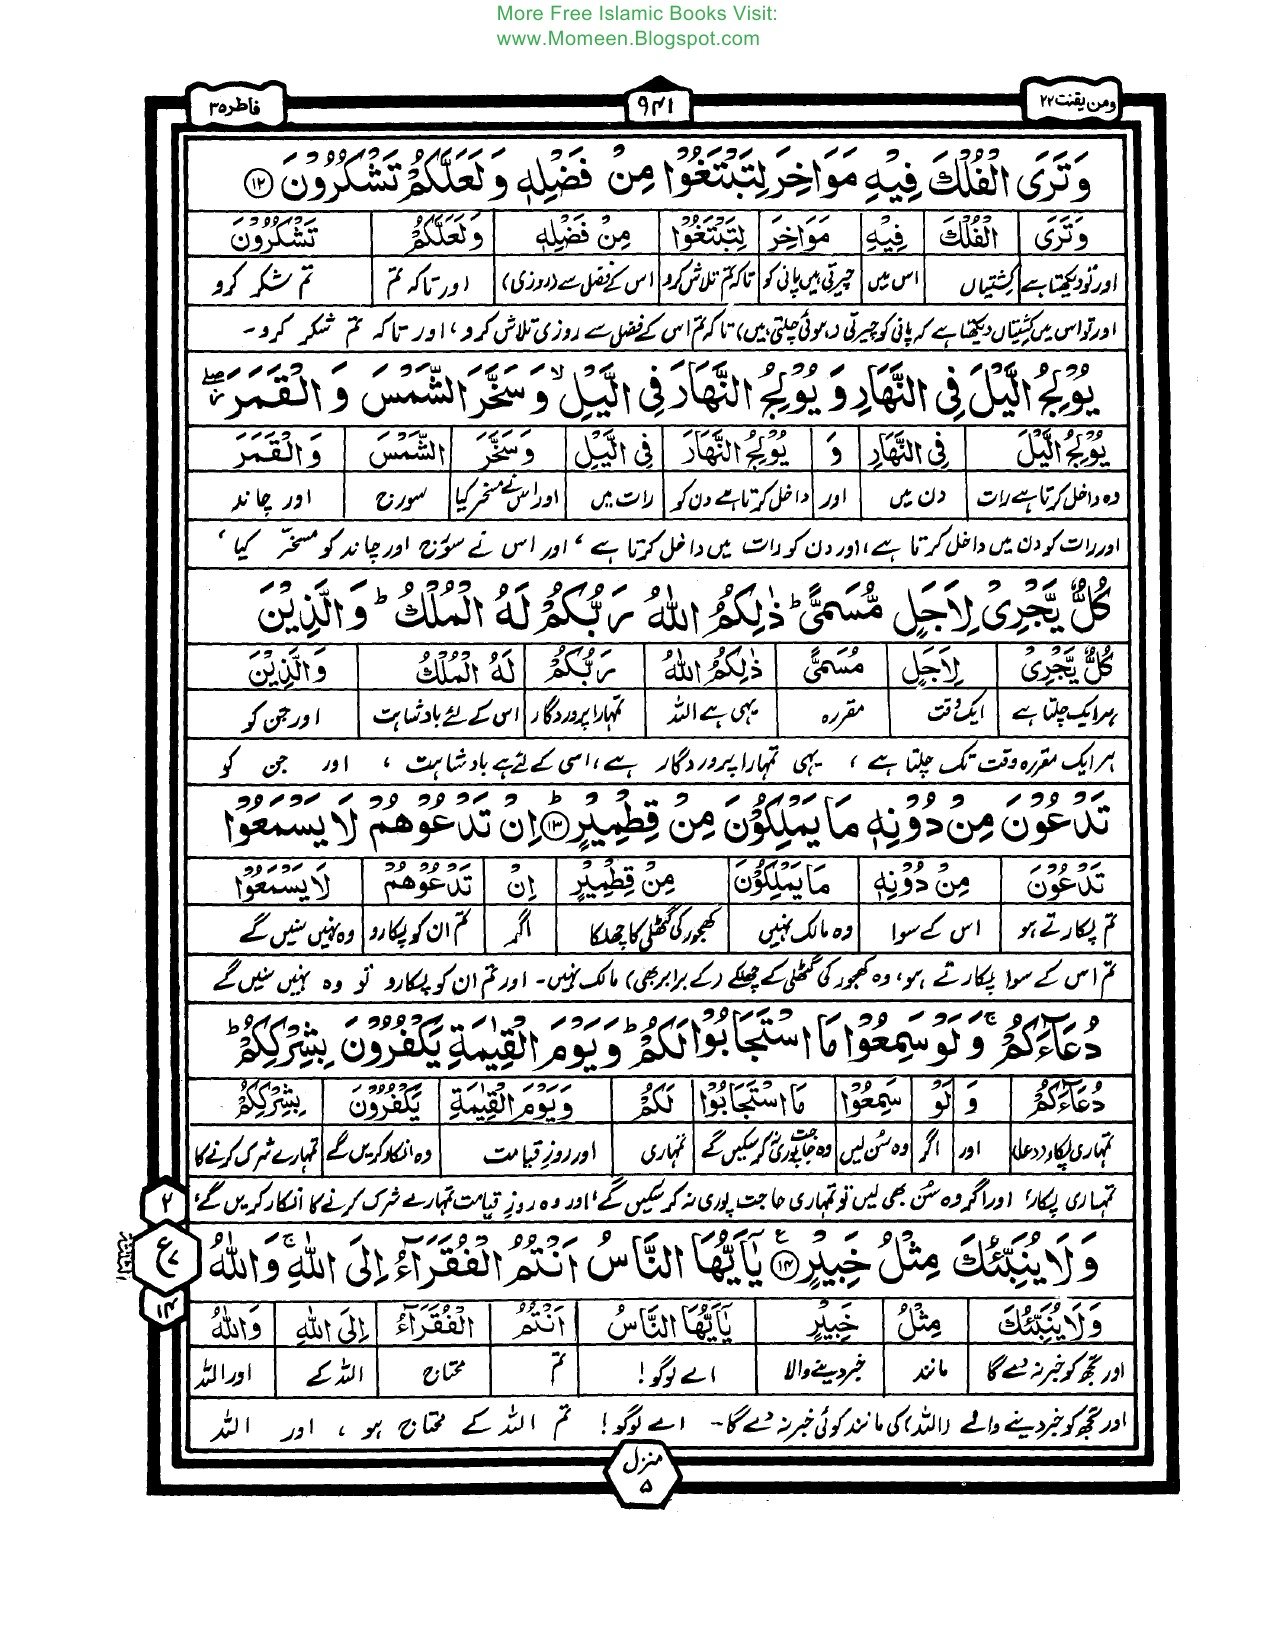 More Free Islamic Books Visit:
www.Momeen.Blogspot.com
ومن یقنت ۲۲ ۹۴۱ فاطر ۳۵
وَتَرَى الْفُلْكَ فِيْهِ مَوَاخِرَ لِتَبْتَغُوْا مِنْ فَضْلِهٖ وَلَعَلَّكُمْ تَشْكُرُوْنَ ﴿۱۲﴾
وَتَرَى الْفُلْكَ فِيْهِ مَوَاخِرَ لِتَبْتَغُوْا مِنْ فَضْلِهٖ وَلَعَلَّكُمْ تَشْكُرُوْنَ
اور تو دیکھتا ہے کشتیاں اس میں چیرتی ہیں پانی کو تاکہ تم تلاش کرو اس کے فضل سے (روزی) اور تاکہ تم تم شکر کرو
اور تو اس میں کشتیاں دیکھتا ہے کہ پانی کو چیرتی (ہوئی چلتی ہیں) تاکہ تم اس کے فضل سے روزی تلاش کرو، اور تاکہ تم شکر کرو۔
يُوْلِجُ الَّيْلَ فِى النَّهَارِ وَيُوْلِجُ النَّهَارَ فِى الَّيْلِ ۙ وَسَخَّرَ الشَّمْسَ وَالْقَمَرَ ۖ
يُوْلِجُ الَّيْلَ فِى النَّهَارِ وَ يُوْلِجُ النَّهَارَ فِى الَّيْلِ وَسَخَّرَ الشَّمْسَ وَالْقَمَرَ
وہ داخل کرتا ہے رات دن میں اور داخل کرتا ہے دن کو رات میں اور اس نے مسخر کیا سورج اور چاند
اور رات کو دن میں داخل کرتا ہے، اور دن کو رات میں داخل کرتا ہے، اور اس نے سورج اور چاند کو مسخّر کیا،
كُلٌّ يَّجْرِىْ لِاَجَلٍ مُّسَمًّى ؕ ذٰلِكُمُ اللّٰهُ رَبُّكُمْ لَهُ الْمُلْكُ ؕ وَالَّذِيْنَ
كُلٌّ يَّجْرِىْ لِاَجَلٍ مُّسَمًّى ذٰلِكُمُ اللّٰهُ رَبُّكُمْ لَهُ الْمُلْكُ وَالَّذِيْنَ
ہر ایک چلتا ہے ایک وقت مقررہ یہی ہے اللہ تمہارا پروردگار اس کے لئے بادشاہت اور جن کو
ہر ایک مقررہ وقت تک چلتا ہے، یہی تمہارا پروردگار ہے، اسی کے لئے ہے بادشاہت، اور جن کو
تَدْعُوْنَ مِنْ دُوْنِهٖ مَا يَمْلِكُوْنَ مِنْ قِطْمِيْرٍ ؕ ﴿۱۳﴾ اِنْ تَدْعُوْهُمْ لَا يَسْمَعُوْا
تَدْعُوْنَ مِنْ دُوْنِهٖ مَا يَمْلِكُوْنَ مِنْ قِطْمِيْرٍ اِنْ تَدْعُوْهُمْ لَا يَسْمَعُوْا
تم پکارتے ہو اس کے سوا وہ مالک نہیں کھجور کی گٹھلی کا چھلکا اگر تم ان کو پکارو وہ نہیں سنیں گے
تم اس کے سوا پکارتے ہو، وہ کھجور کی گٹھلی کے چھلکے (کے برابر بھی) مالک نہیں۔ اور تم ان کو پکارو تو وہ نہیں سنیں گے
دُعَآءَكُمْ ۚ وَلَوْ سَمِعُوْا مَا اسْتَجَابُوْا لَكُمْ ؕ وَيَوْمَ الْقِيٰمَةِ يَكْفُرُوْنَ بِشِرْكِكُمْ ؕ
دُعَآءَكُمْ وَ لَوْ سَمِعُوْا مَا اسْتَجَابُوْا لَكُمْ وَيَوْمَ الْقِيٰمَةِ يَكْفُرُوْنَ بِشِرْكِكُمْ
تمہاری پکار (دعا) اور اگر وہ سُن لیں وہ حاجت پوری نہ کرسکیں گے تمہاری اور روزِ قیامت وہ انکار کریں گے تمہارے شرک کرنے کا
تمہاری پکار، اور اگر وہ سُن بھی لیں تو تمہاری حاجت پوری نہ کرسکیں گے، اور وہ روزِ قیامت تمہارے شرک کرنے کا انکار کریں گے،
وَلَا يُنَبِّئُكَ مِثْلُ خَبِيْرٍ ﴿۱۴﴾ يٰۤاَيُّهَا النَّاسُ اَنْتُمُ الْفُقَرَآءُ اِلَى اللّٰهِ ۚ وَاللّٰهُ
وَلَا يُنَبِّئُكَ مِثْلُ خَبِيْرٍ يٰۤاَيُّهَا النَّاسُ اَنْتُمُ الْفُقَرَآءُ اِلَى اللّٰهِ وَاللّٰهُ
اور تجھ کو خبر نہ دے گا مانند خبر دینے والا اے لوگو! تم محتاج اللہ کے اور اللہ
اور تجھ کو خبر دینے والے (اللہ) کی مانند کوئی خبر نہ دے گا۔ اے لوگو! تم اللہ کے محتاج ہو، اور اللہ
۲
ع
۷
۱۴
منزل ۵